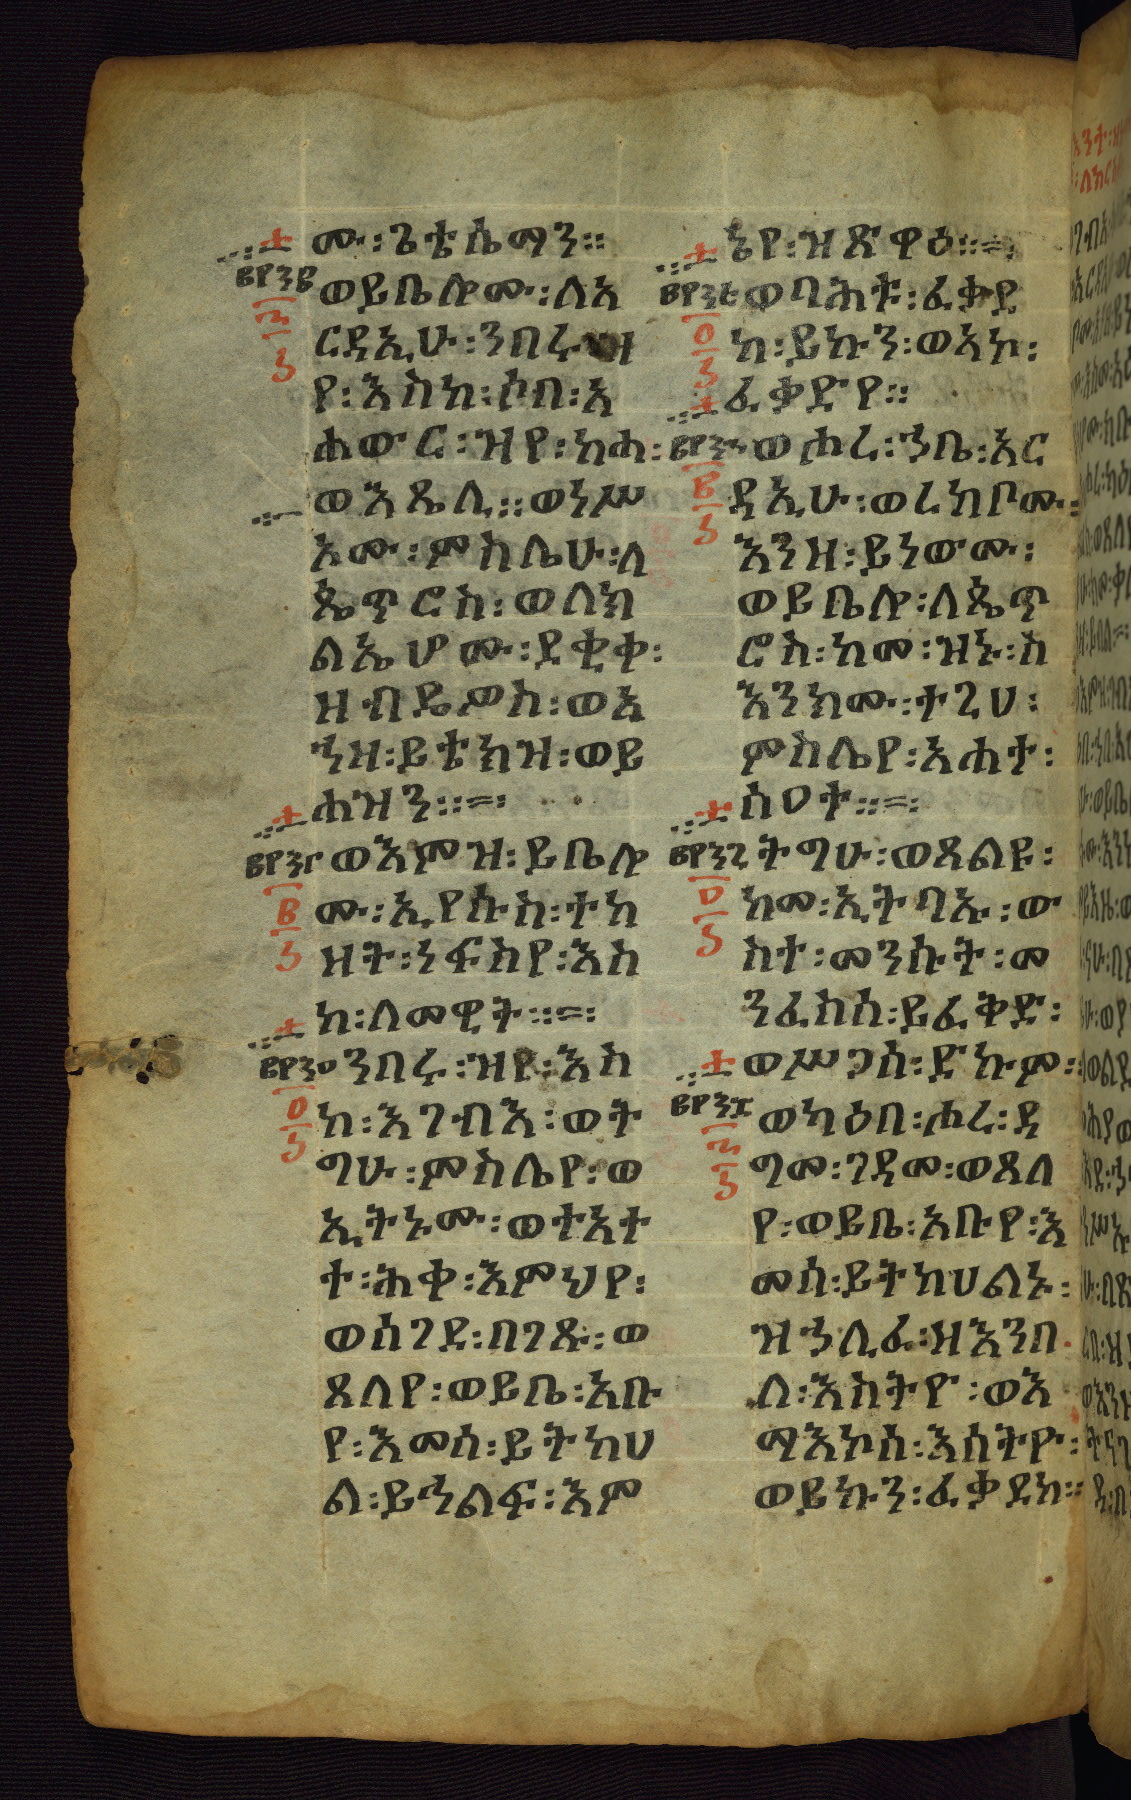 ሙ፡ጌቴሴማን፡፡
፪፻፺፪
ወይቤሎሙ፡ለአ
ርዳኢሁ፡ንበሩ፡ዝ
የ፡እስከ፡ሶበ፡አ
ሐውር፡ዝየ፡ከሐ፡
ወእጼሊ፡፡ወነሥ
አሙ፡ምስሌሁ፡ለ
ጴጥሮስ፡ወለክ
ልኤሆሙ፡ደቂቀ፡
ዘብዴዎስ፡ወአ
ኀዘ፡ይቴክዝ፡ወይ
ሐዝን፡፡=፡
፪፻፺፫
ወእምዝ፡ይቤሎ
ሙ፡ኢየሱስ፡ተከ
ዘት፡ነፍስየ፡እስ
ከ፡ለመዊት፡፡=፡
፪፻፺፬
ንበሩ፡ዝየ፡እስ
ከ፡እገብእ፡ወት
ግሁ፡ምስሌየ፡ወ
ኢትኑሙ፡ወተአተ
ተ፡ሕቀ፡እምህየ፡
ወሰገደ፡በገጹ፡ወ
ጸለየ፡ወይቤ፡አቡ
የ፡እመሰ፡ይትከሀ
ል፡ይኀልፍ፡እም
ኔየ፡ዝጽዋዕ፡፡=፡
፪፻፺፭
ወባሕቱ፡ፈቃደ
ከ፡ይኩን፡ወአኮ፡
ፈቃድየ፡፡
፪፻፺፮
ወሐረ፡ኀቤ፡አር
ዳኢሁ፡ወረከቦሙ፡
እንዘ፡ይነውሙ፡
ወይቤሎ፡ለጴጥ
ሮስ፡ከመ፡ዝኑ፡ስ
እንክሙ፡ተጊሀ፡
ምስሌየ፡አሐተ፡
ሰዐተ፡፡=፡
፪፻፺፯
ትግሁ፡ወጸልዩ፡
ከመ፡ኢትባኡ፡ው
ስተ፡መንሱት፡መ
ንፈስሰ፡ይፈቅድ፡
ወሥጋሰ፡ድኩም፡፡
፪፻፺፰
ወካዕበ፡ሐረ፡ዳ
ግመ፡ገዳመ፡ወጸለ
የ፡ወይቤ፡አቡየ፡እ
መሰ፡ይትከሀልኑ፡
ዝኀሊፈ፡ዘእንበ
ለ፡እስትዮ፡ወእ
ማእኮሰ፡እሰትዮ፡
ወይኩን፡ፈቃደከ፡፡